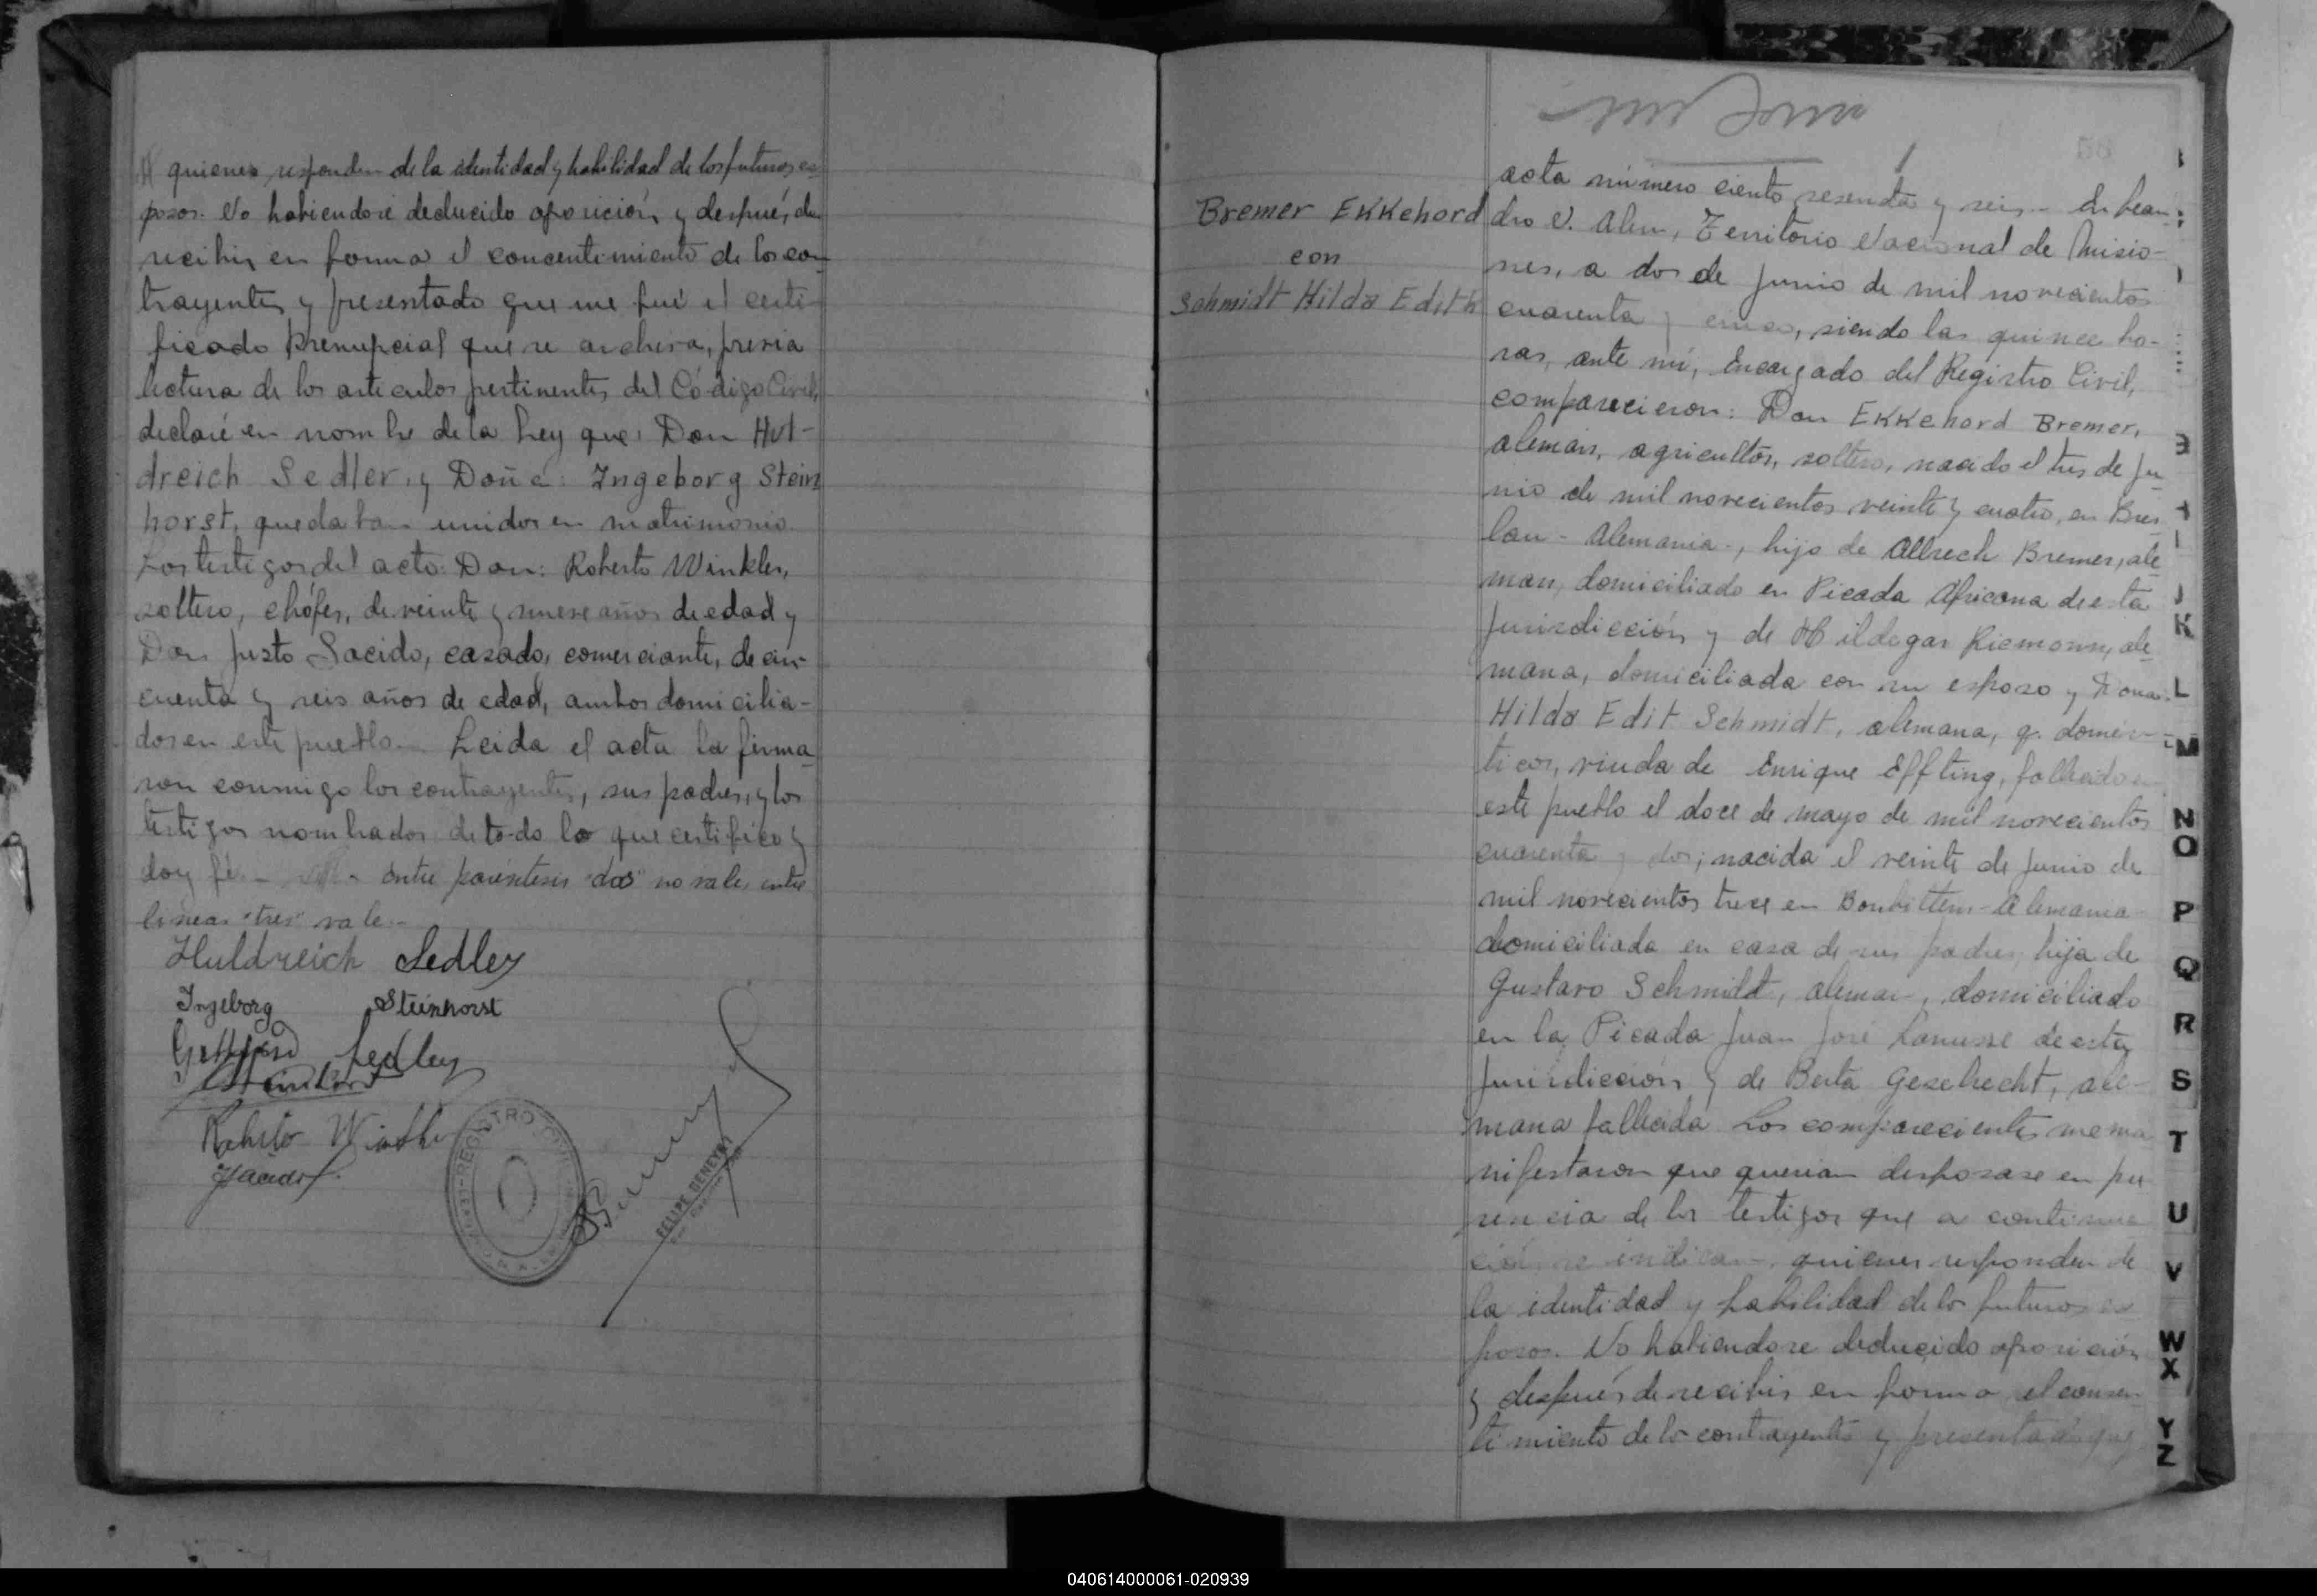 quienes responden de la identidad y habilidad de los futuros es-
posos. No habiendose deducido oposición, y después de
recibir, en forma el concentimiento de los con-
trayentes y presentado que me fué el certi-
ficado Prenupcial que se archiva, previa
lectura de los articulos pertinentes del Código Civil,
declaré en nombre de la Ley que: Don Hul-
dreich Sedler, y Doña: Ingeborg Stein
horst, quedaban unidos en matrimonio.
Los testigos del acto: Don: Roberto Winkler,
soltero, chófer, de veinte y nueve años de edad y
Don Justo Sacido, casado, comerciante, de cin-
cuenta y seis años de edad, ambos domicilia-
dos en este pueblo. Leida el acta la firma-
ron conmigo los contrayentes, sus padres, y los
testigos nombrados de todo lo que certifico y
doy fé. entre paréntesis "dos" no vale, entre
lineas "tres" vale.-
Huldreich Sedler
Ingeborg Steinhorst
Sedler
Roberto Winkler
REGISTRO CIVIL
FELIPE BENEYRT
58
acta número ciento sesenta y seis.- En Lean-
Bremer Ekkehard
con
Schmidt Hilda Edith
dro N. Alem, Territorio Nacional de Misio-
nes, a dos de Junio de mil novecientos
cuarenta y cinco, siendo las quince ho-
ras, ante mí, Encargado del Registro Civil,
comparecieron: Don Ekkehard Bremer,
alemán, agricultor, soltero, nacido el tres de Ju
nio de mil novecientos veinte y cuatro, en Bres
lau - Alemania -, hijo de Albrech Bremer, ale
man, domiciliado en Picada Africana de esta
Jurisdicción y de Hildegar Riemann, ale
mana, domiciliada con su esposo y Doña
Hilda Edit Schmidt, alemana, q. domés-
ticos, viuda de Enrique Effting, fallecido en
este pueblo el doce de mayo de mil novecientos
cuarenta y dos; nacida el veinte de Junio de
mil novecientos trece en Alemania
domiciliada en casa de sus padres, hija de
Gustavo Schmidt, aleman, domiciliado
en la Picada Juan José Lanusse de esta
Jurisdicción y de Berta Geselrecht, ale-
mana fallecida. Los comparecientes me ma
nifestaron que querian desposarse en pre
sencia de los testigos que a continua
ción se indican, quienes responden de
la identidad y habilidad de los futuros es
posos. No habiendose deducido oposición
y después de recibir en forma el consen-
timiento de los contrayentes y presentado que
K
L
M
N
O
P
Q
R
S
T
U
V
W
X
Y
Z
040614000061-020939